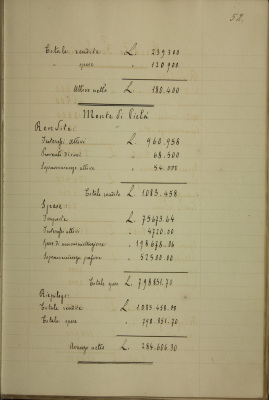 52.
Totale rendite L. 239.300
" spese " 120.900
Attivo netto L. 180.400
Monte di Pietà
Rendite:
Interessi attivi L. 960.958
Proventi diversi " 68.500
Sopravvenienze attive " 54.000
Totale rendite L. 1083.458
Spese:
Imposte L. 75673.64
Interessi passivi " 4720.00
Spese di amministrazione "
Sopravvenienze passive " 52500.00
Totale spese L. 798851.70
Riepilogo:
Totale rendite L. 1.083.458.00
Totale spese " 798.851.70
Avanzo netto L. 284.606.30